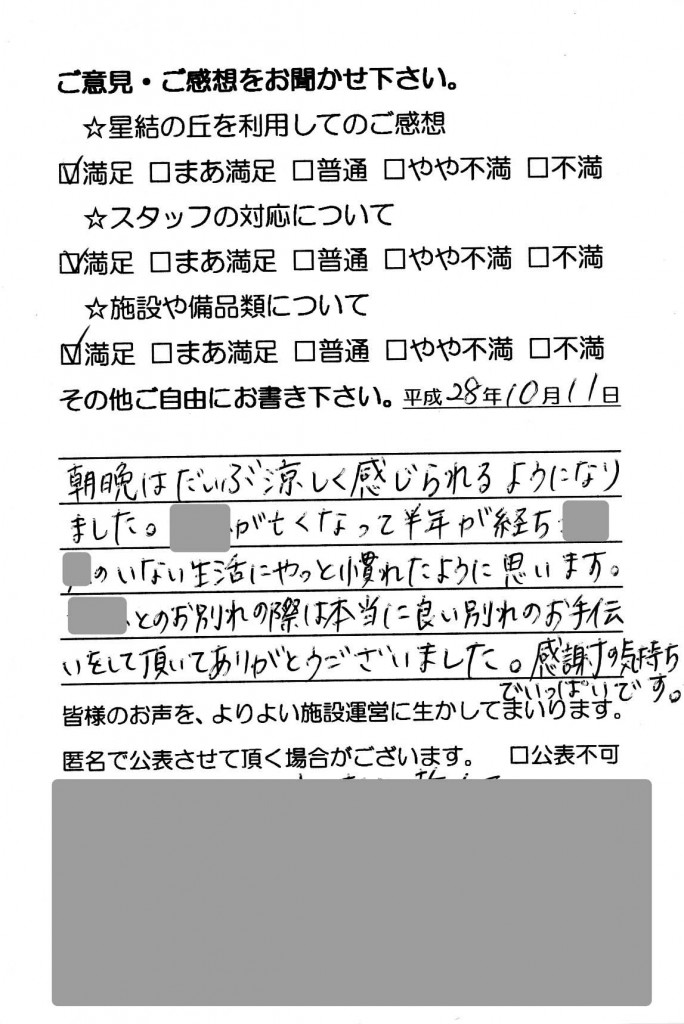 ご意見・ご感想をお聞かせ下さい。
☆星結の丘を利用してのご感想
☑満足 □まあ満足 □普通 □やや不満 □不満
☆スタッフの対応について
☑満足 □まあ満足 □普通 □やや不満 □不満
☆施設や備品類について
☑満足 □まあ満足 □普通 □やや不満 □不満
その他ご自由にお書き下さい。平成28年10月11日
朝晩はだいぶ涼しく感じられるようになり
ました。 が亡くなって半年が経ち
のいない生活にやっと慣れたように思います。
とのお別れの際は本当に良い別れのお手伝
いをして頂いてありがとうございました。感謝の気持ち
でいっぱいです。
皆様のお声を、よりよい施設運営に生かしてまいります。
匿名で公表させて頂く場合がございます。 □公表不可